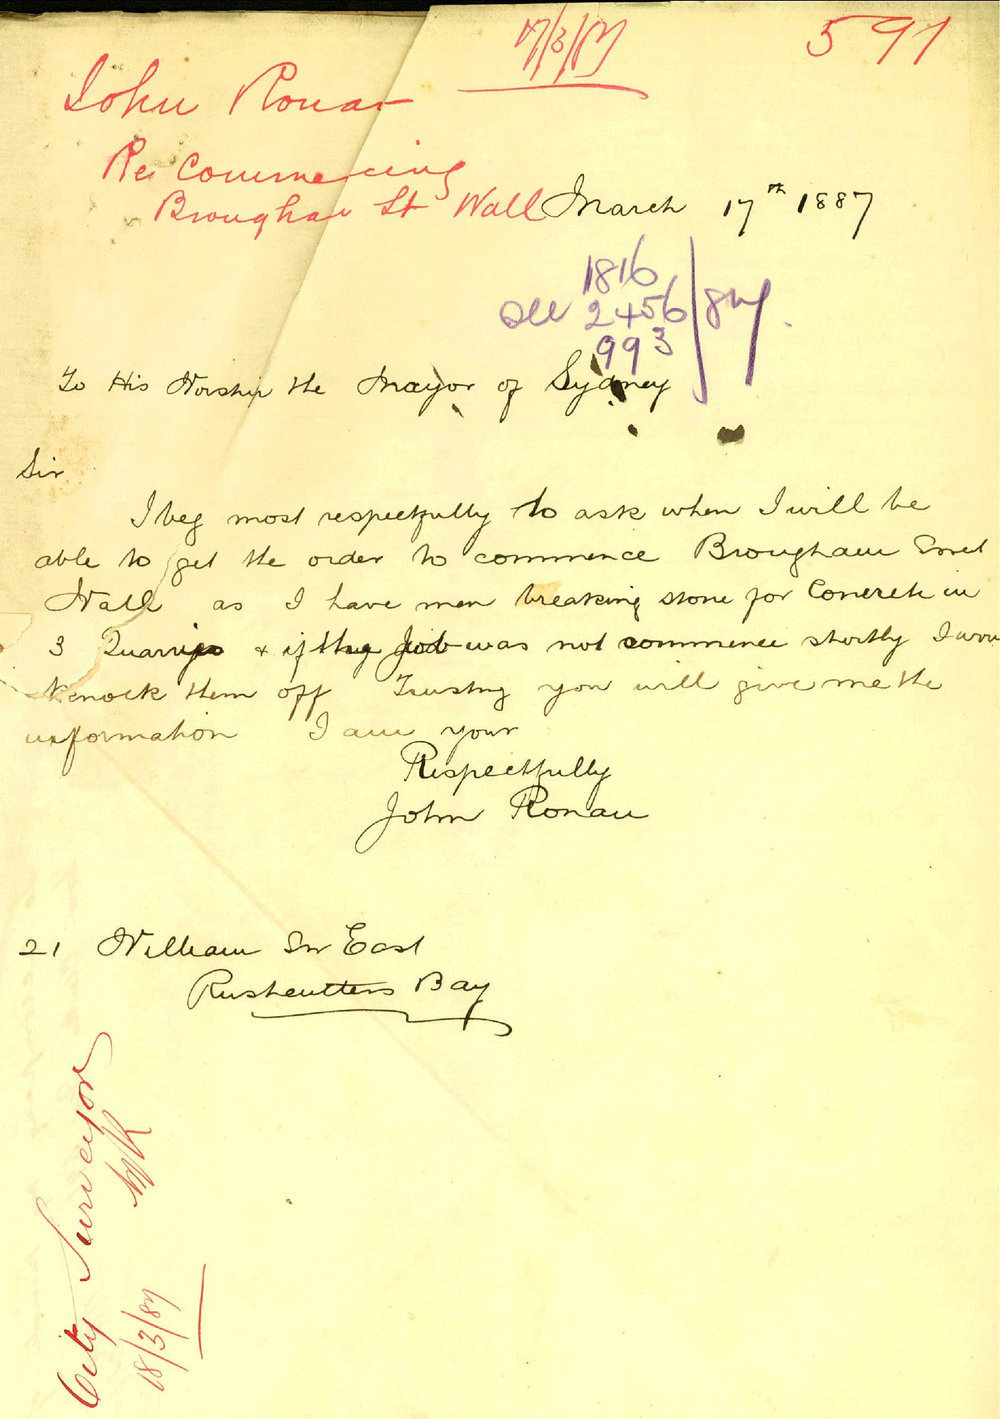 17/3/87
591
John Ronan
Re Commencing
Brougham St Wall
March 17th 1887
1816
see 2456 /87.
993
To His Worship the Mayor of Sydney
Sir
I beg most respectfully to ask when I will be
able to get the order to commence Brougham Street
Wall as I have men breaking stone for Concrete in
3 Quarrys & if the Job was not commence shortly I
Knock them off Trusting you will give me the
information I am your
Respectfully
John Ronan
21 William St East
Rushcutters Bay
City Surveyor
18/3/87